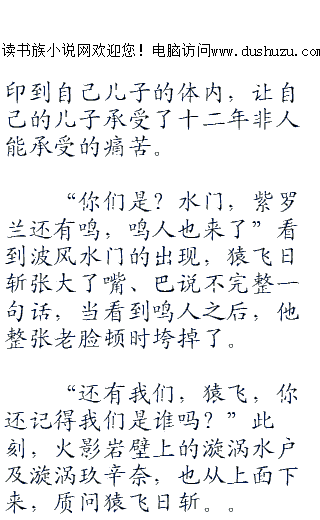 读书族小说网欢迎您！电脑访问www.dushuzu.com
印到自己儿子的体内，让自
己的儿子承受了十二年非人
能承受的痛苦。
“你们是？水门，紫罗
兰还有鸣，鸣人也来了”看
到波风水门的出现，猿飞日
斩张大了嘴、巴说不完整一
句话，当看到鸣人之后，他
整张老脸顿时垮掉了。
“还有我们，猿飞，你
还记得我们是谁吗？”此
刻，火影岩壁上的漩涡水户
及漩涡玖辛奈，也从上面下
来，质问猿飞日斩。。